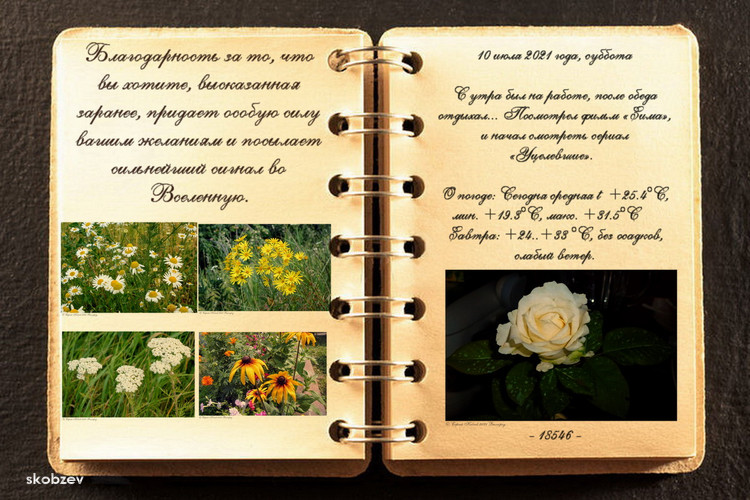 Благодарность за то, что
вы хотите, высказанная
заранее, придает особую силу
вашим желаниям и посылает
сильнейший сигнал во
Вселенную.
10 июля 2021 года, суббота
С утра был на работе, после обеда
отдыхал... Посмотрел фильм «Зима»,
и начал смотреть сериал
«Уцелевшие».
О погоде: Сегодня средняя t +25.4°C,
мин. +19.3°C, макс. +31.5°C
Завтра: +24..+33°C, без осадков,
слабый ветер.
- 18546 -
skobzev